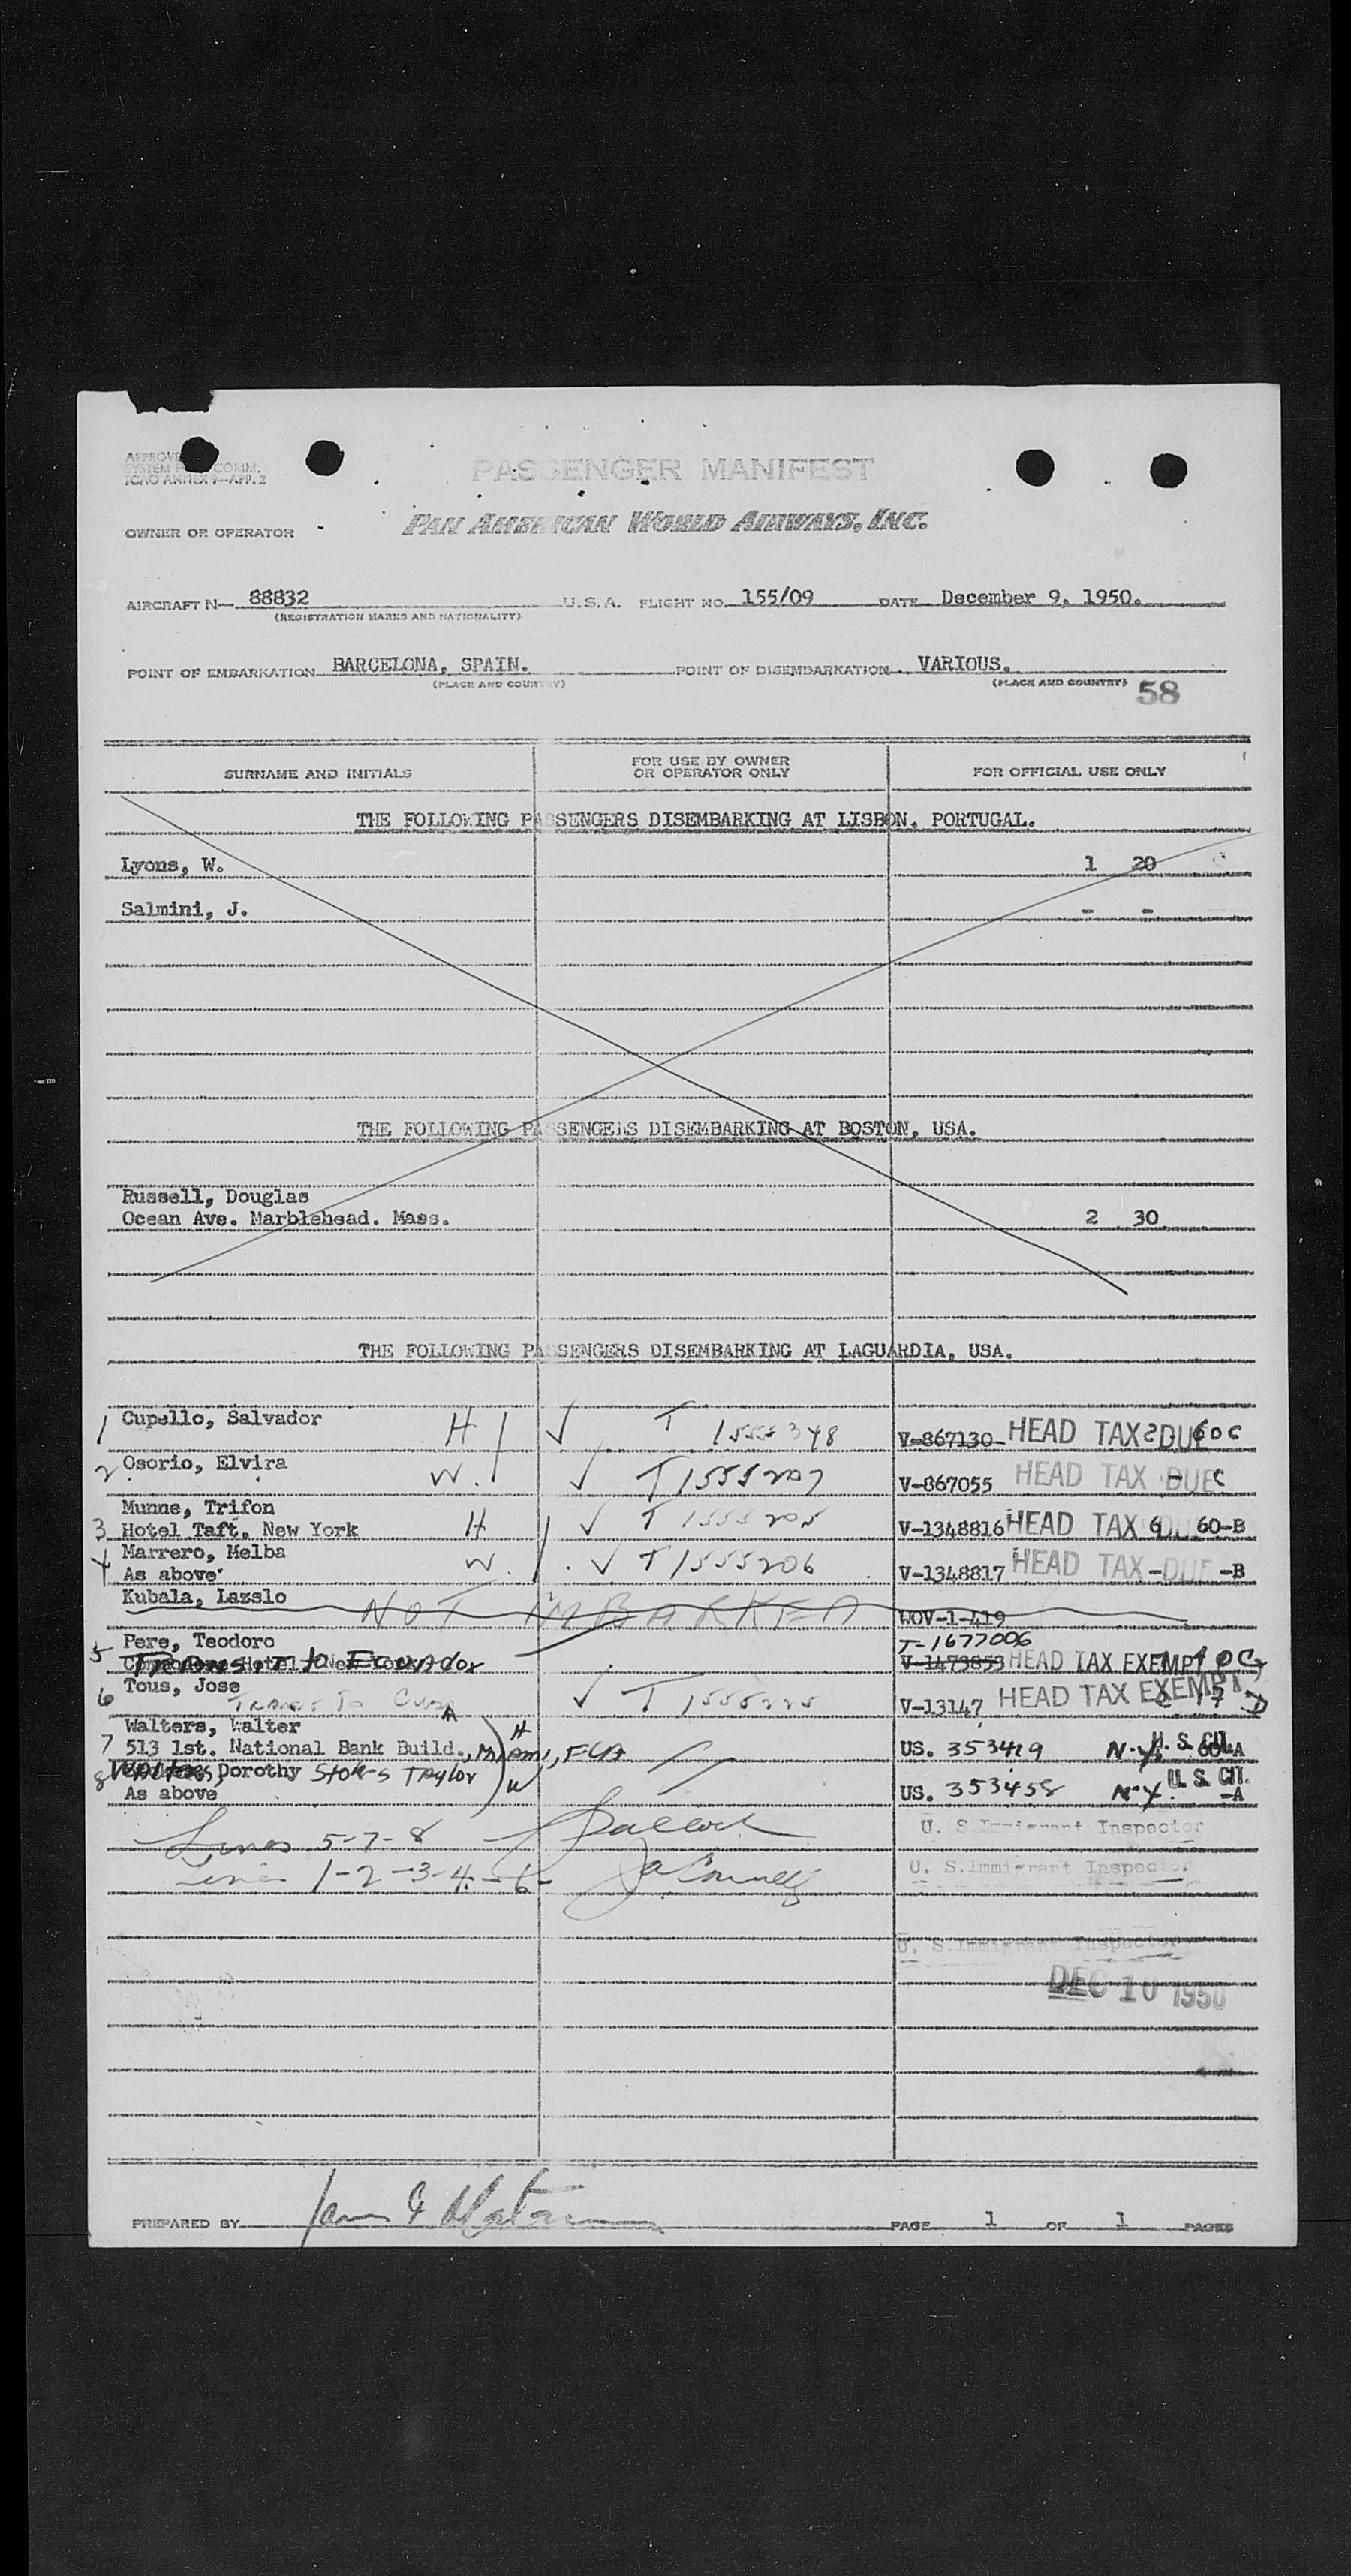 APPROVED
SYSTEM COMM.
ICAO ANNEX 9—APP. 2
PASSENGER MANIFEST
OWNER OR OPERATOR
PAN AMERICAN WORLD AIRWAYS, INC.
AIRCRAFT N— 88832 U.S.A. FLIGHT NO. 155/09 DATE December 9, 1950.
(REGISTRATION MARKS AND NATIONALITY)
POINT OF EMBARKATION BARCELONA, SPAIN. POINT OF DISEMBARKATION VARIOUS.
(PLACE AND COUNTRY) (PLACE AND COUNTRY) 58
SURNAME AND INITIALS FOR USE BY OWNER OR OPERATOR ONLY FOR OFFICIAL USE ONLY
THE FOLLOWING PASSENGERS DISEMBARKING AT LISBON, PORTUGAL.
Lyons, W. 1 20
Salmini, J. - -
THE FOLLOWING PASSENGERS DISEMBARKING AT BOSTON, USA.
Russell, Douglas
Ocean Ave. Marblehead. Mass. 2 30
THE FOLLOWING PASSENGERS DISEMBARKING AT LAGUARDIA, USA.
1 Cupello, Salvador H √ T 1555348 V-867130 HEAD TAX DUE 60 C
2 Osorio, Elvira W. √ T1555207 V-867055 HEAD TAX DUE - C
Munne, Trifon
3 Hotel Taft. New York H √ T 1555205 V-1348816 HEAD TAX 60-B
4 Marrero, Melba W. √ T1555206
As above V-1348817 HEAD TAX DUE -B
Kubala, Lazslo NOT EMBARKED WOV-1-419
5 Pere, Teodoro T-1677006
Transit to Ecuador V-1473853 HEAD TAX EXEMPT
6 Tous, Jose √ T 1555225
Transit To Cuba V-13147 HEAD TAX EXEMPT 17 D
Walters, Walter H
7 513 1st. National Bank Build., Miami, FLA US. 353419 N.Y. U. S. CIT. -A
8 Walters, Dorothy Stokes Taylor W
As above US. 353458 N.Y. U. S. CIT. -A
Lines 5-7-8 U. S. Immigrant Inspector
Lines 1-2-3-4-6- U. S. Immigrant Inspector
U. S. Immigrant Inspector
DEC 10 1950
PREPARED BY PAGE 1 OF 1 PAGES